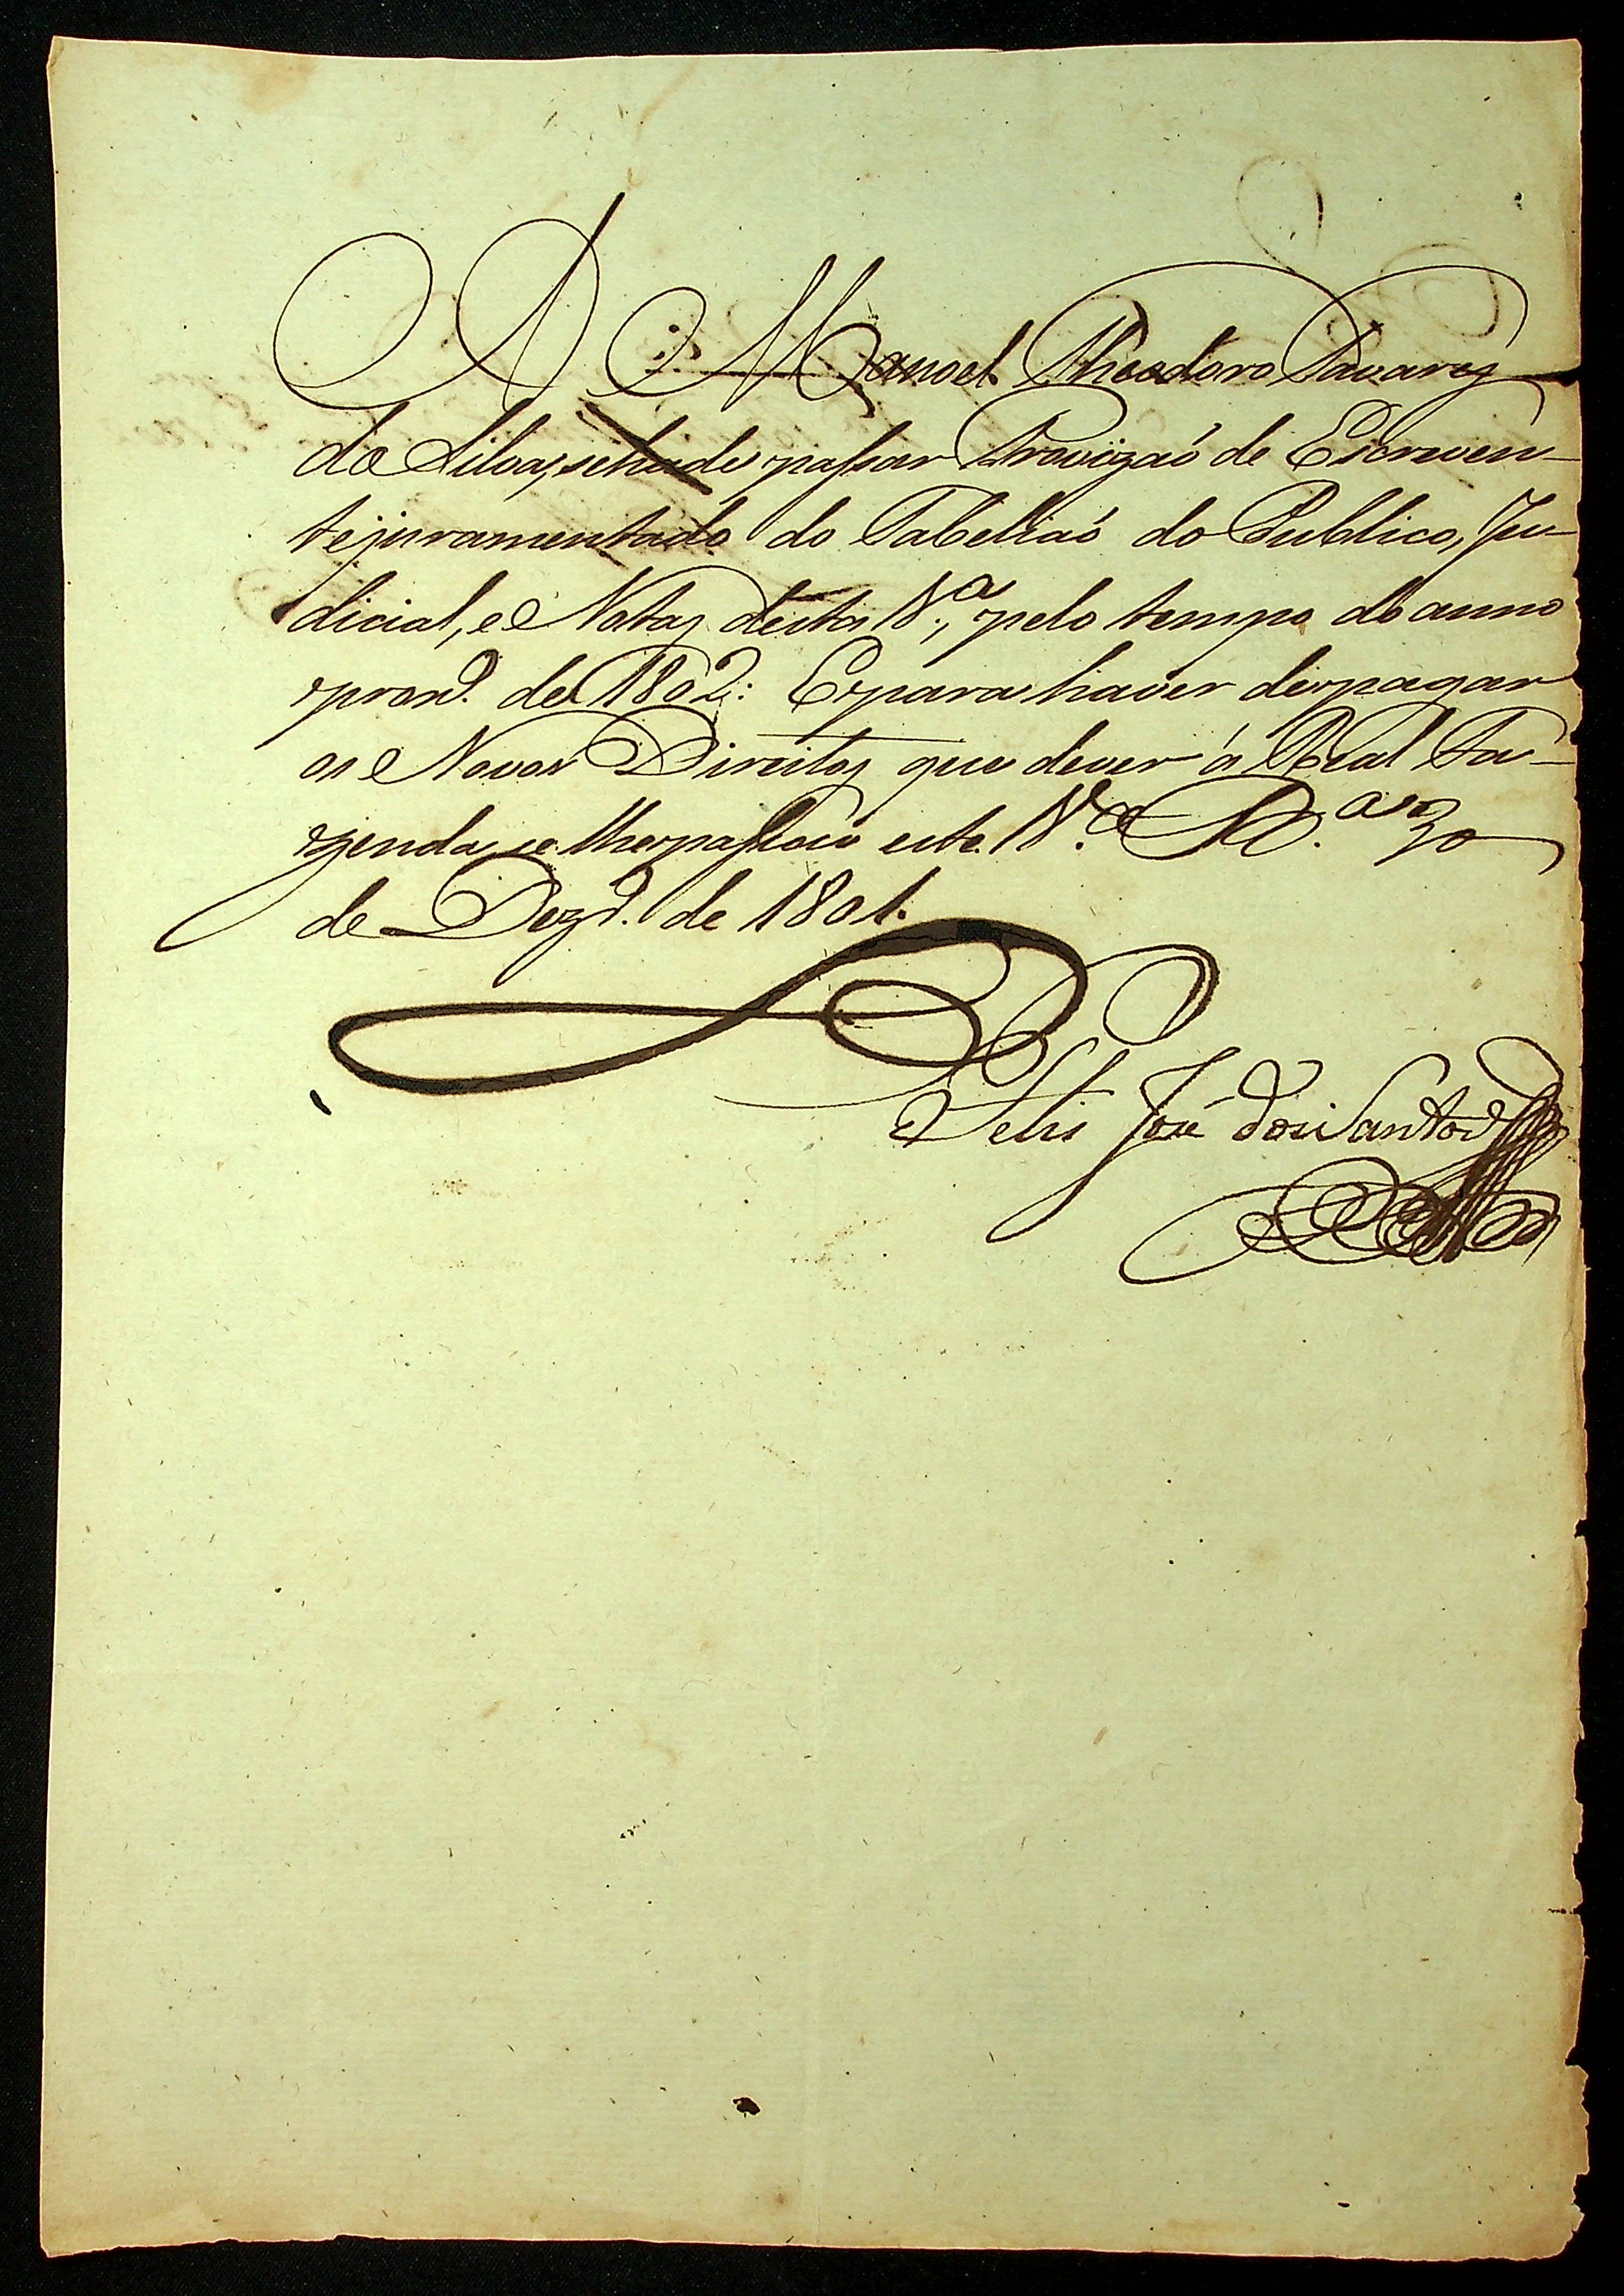 A Manoel Theodoro Tavares
da Silva, se hade passar Provizaõ de Escreven-
te juramentado do Tabelliaõ do Publico, Ju-
dicial, e Notas desta V.ª, pelo tempo do anno
prox.º de 1802: E para haver de pagar
os Novos Direitos que dever á Real Fa-
zenda, se lhe passou este. V.ª R.ª 30
de Dezr.º de 1801.
Felis José dos Santos